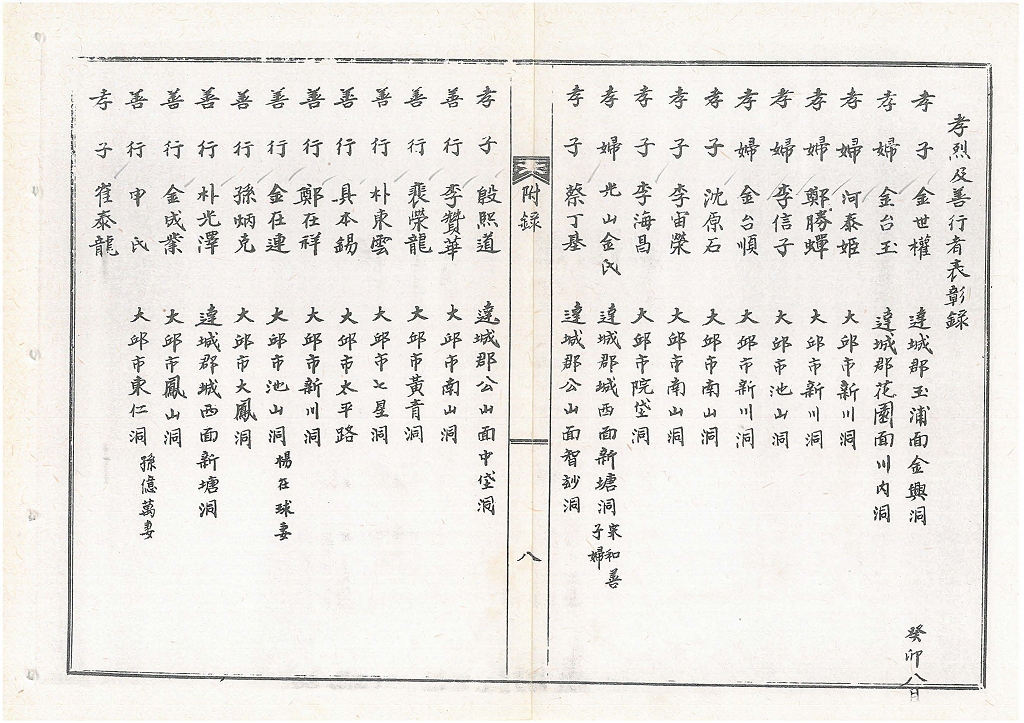 孝烈及善行者表彰録
孝子 金世權 達城郡玉浦面金興洞 癸卯八月
孝婦 金台玉 達城郡花園面川内洞
孝婦 河泰姬 大邱市新川洞
孝婦 鄭勝蟬 大邱市新川洞
孝婦 李信子 大邱市池山洞
孝婦 金台順 大邱市新川洞
孝子 沈原石 大邱市南山洞
孝子 李宙榮 大邱市南山洞
孝子 李海昌 大邱市院垈洞
孝婦 光山金氏 達城郡城西面新塘洞 宋和善子婦
孝子 蔡丁基 達城郡公山面智妙洞
附録
八
孝子 殷熙道 達城郡公山面中垈洞
善行 李贊華 大邱市南山洞
善行 裵榮龍 大邱市黃青洞
善行 朴東雲 大邱市七星洞
善行 具本錫 大邱市太平路
善行 鄭在祥 大邱市新川洞
善行 金在連 大邱市池山洞 楊在球妻
善行 孫炳克 大邱市大鳳洞
善行 朴光澤 達城郡城西面新塘洞
善行 金成業 大邱市鳳山洞
善行 申氏 大邱市東仁洞 孫億萬妻
孝子 崔泰龍